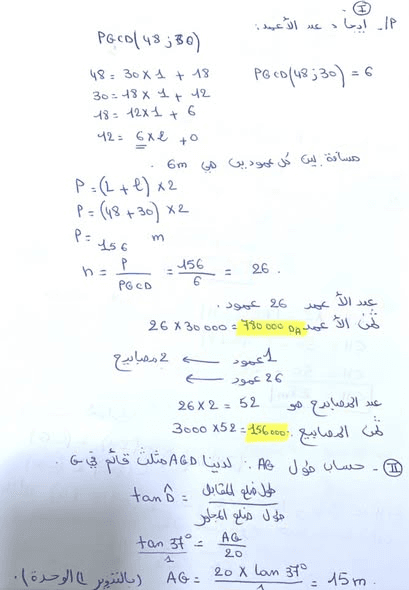 I
1/- إيجاد عدد الأعمدة:
PGCD(48;30)
48 = 30 x 1 + 18
PGCD(48;30) = 6
30 = 18 x 1 + 12
18 = 12 x 1 + 6
12 = 6 x 2 + 0
مسافة بين كل عمودين هي 6m.
P = (L + l) x 2
P = (48 + 30) x 2
P = 156 m
n = P/PGCD = 156/6 = 26.
عدد الأعمدة 26 عمود.
ثمن الأعمدة 26 x 30 000 = 780 000 DA
1 عمود → 2 مصابيح
26 عمود →
عدد المصابيح هو 26 x 2 = 52
ثمن المصابيح: 3000 x 52 = 156 000
II - حساب طول AG: لدينا AGD مثلث قائم في G.
tan D̂ = طول ضلع المقابل / طول ضلع المجاور
tan 37° / 1 = AG / 20
AG = 20 x tan 37° / 1 = 15 m. (بالتدوير إلى الوحدة).